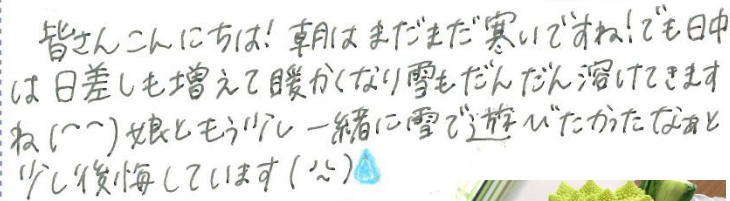 皆さんこんにちは!朝はまだまだ寒いですね!でも日中
は日差しも増えて暖かくなり雪もだんだん溶けてきます
ね(^^)娘ともう少し一緒に雪で遊びたかったなぁと
少し後悔しています(^^;)